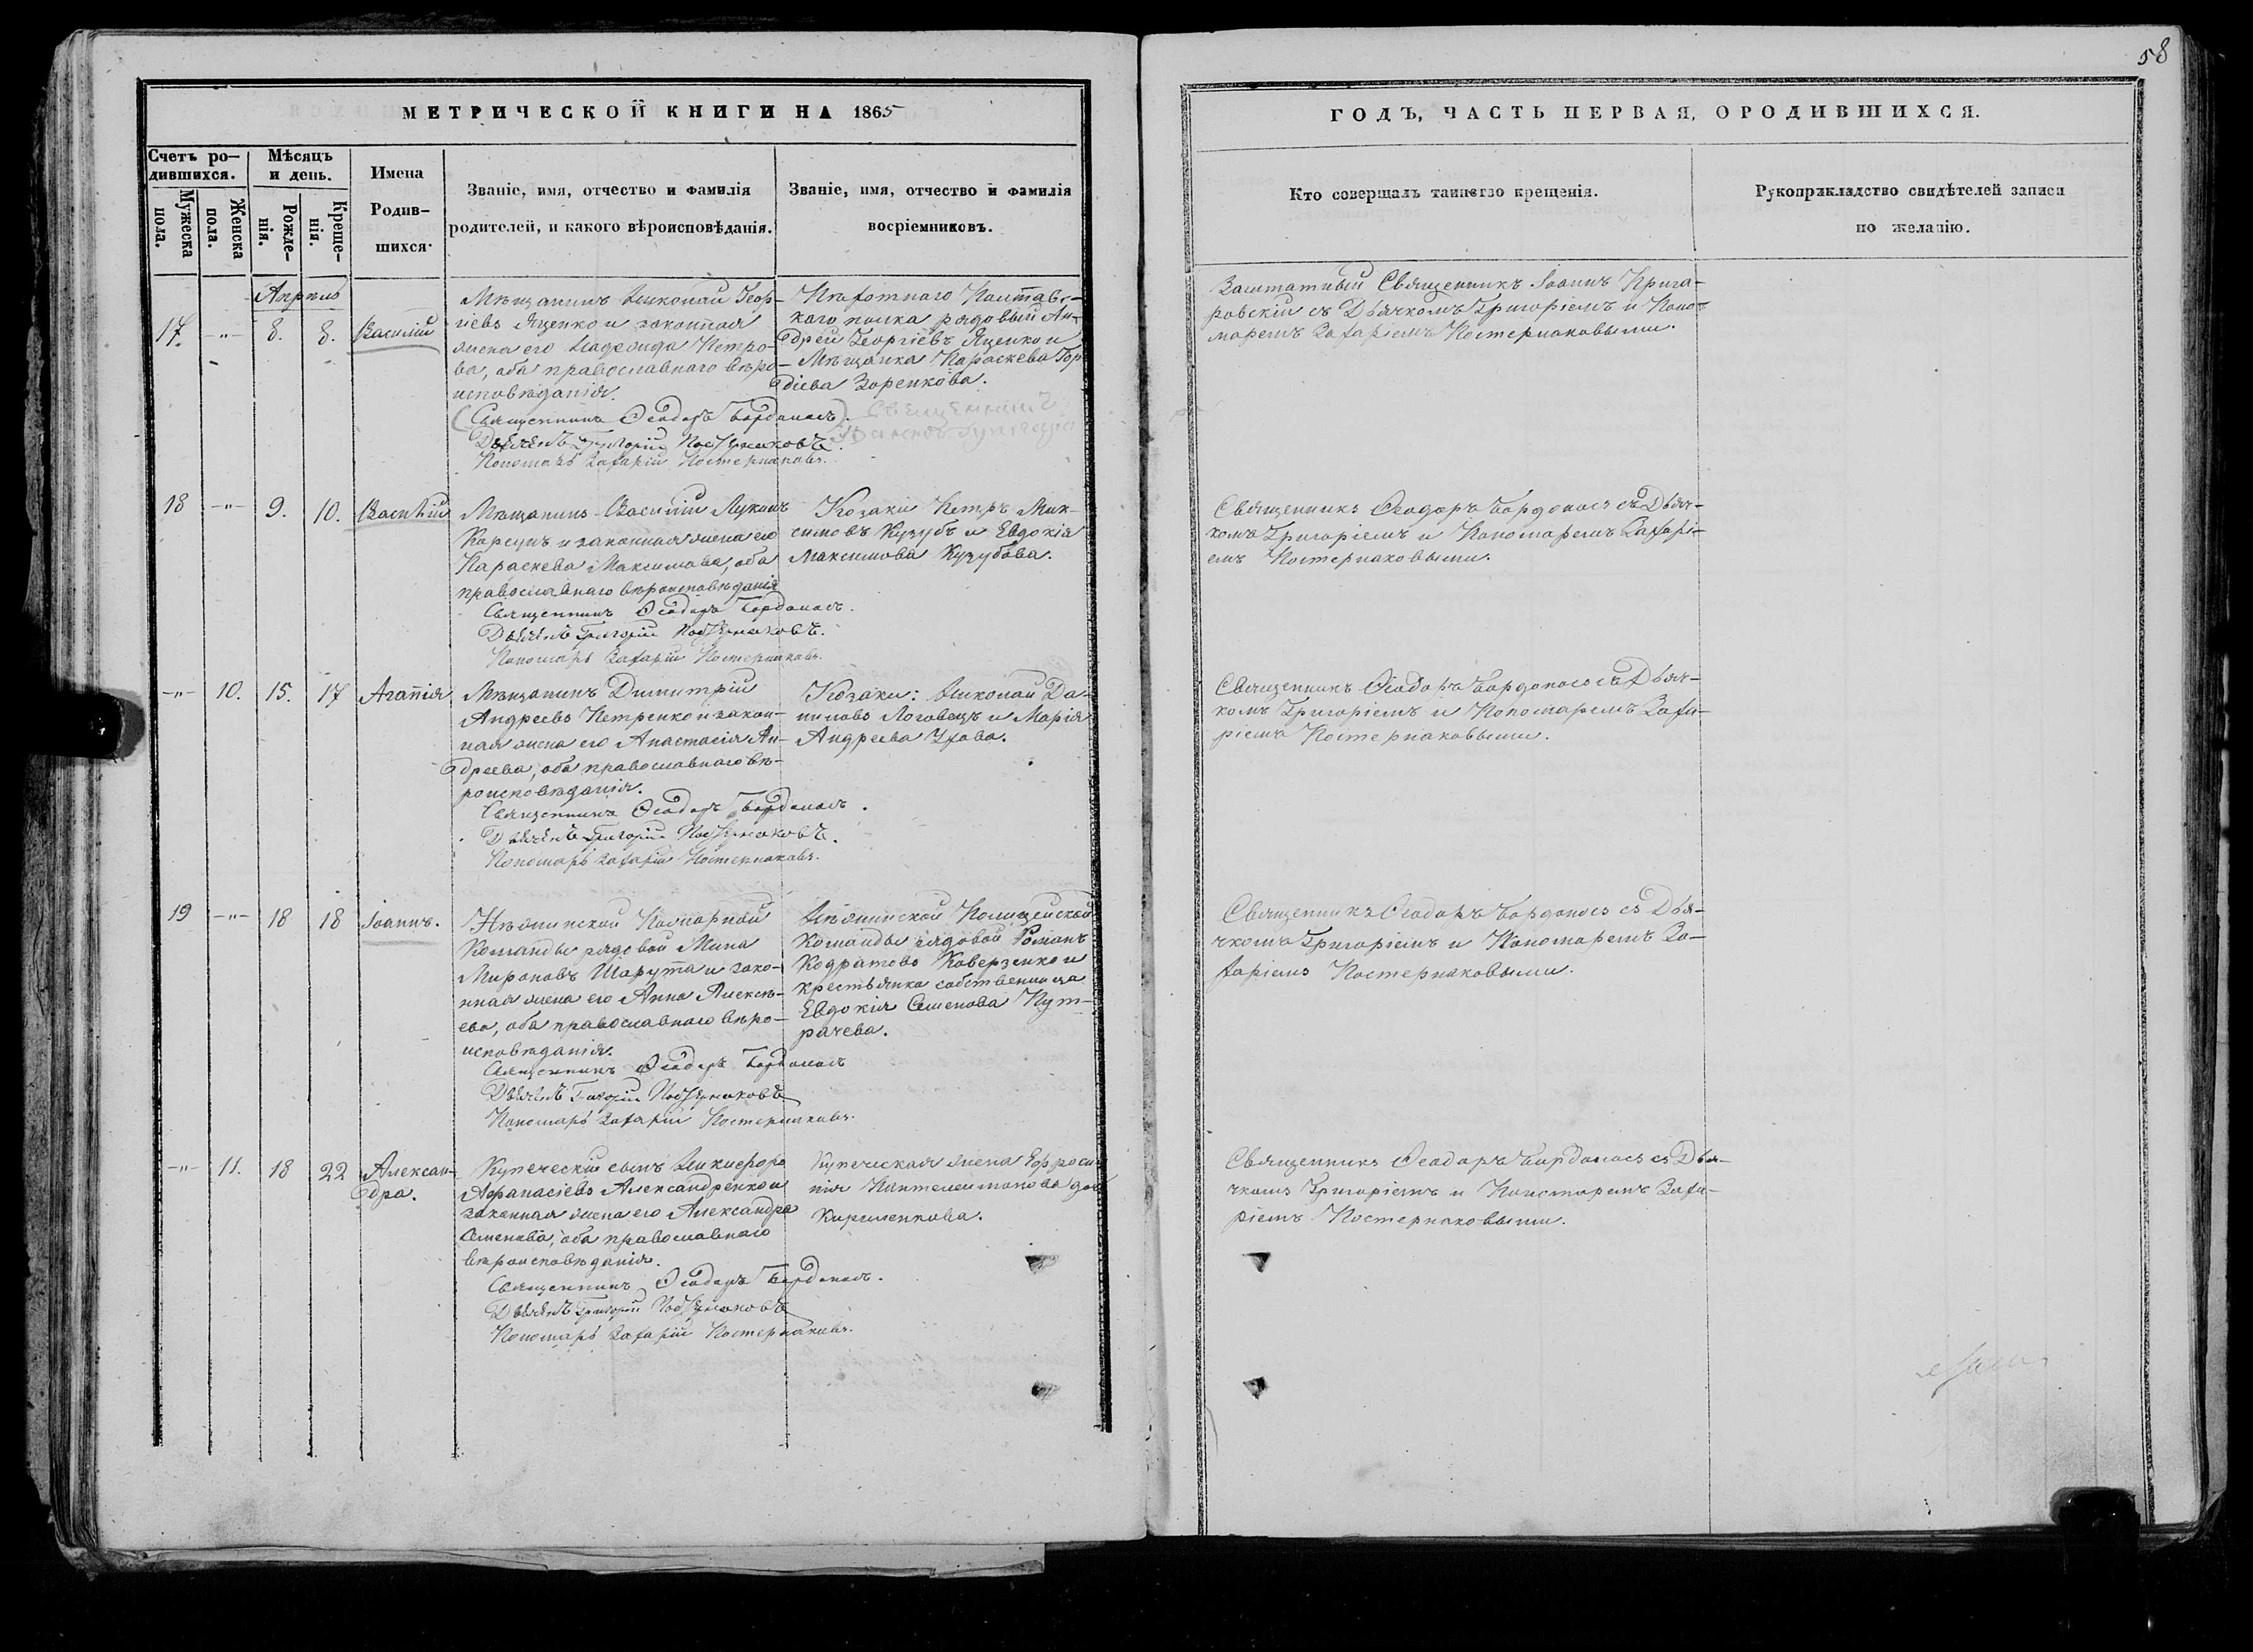 58
МЕТРИЧЕСКОЙ КНИГИ НА 1865
ГОДЪ, ЧАСТЬ ПЕРВАЯ, ОРОДИВШИХСЯ.
Счетъ ро-
дившихся.
Мѣсяцъ
и день.
Мужеска
пола.
Женска
пола.
Рожде-
нія.
Креще-
нія.
Имена
Родив-
шихся.
Званіе, имя, отчество и фамилія
родителей, и какого вѣроисповѣданія.
Званіе, имя, отчество и фамилія
восріемниковъ.
Кто совершалъ таинство крещенія.
Рукоприкладство свидѣтелей записи
по желанію.
Апрѣль
17. -"- 8. 8. Василій
Мѣщанинъ Николай Геор-
гіевъ Яценко и законная
жена его Петро-
ва, оба православнаго вѣро-
исповѣданія.
Священникъ Ѳеодоръ Бордоносъ
Дьячёкъ Григорій Постернаковъ.
Пономарь Захарій Постернаковъ.
Пѣхотнаго Полтавс-
каго полка рядовый Ан-
дрей Георгіевъ Яценко и
Мѣщанка Параскева Гор-
діева Зоренкова.
Священникъ
Заштатный Священникъ Іоаннъ Крига-
ровскій съ Дьячкомъ Григоріемъ и Поно-
маремъ Захаріемъ Постернаковыми.
18 -"- 9. 10. Василій
Мѣщанинъ Василій Лукинъ
Карсунъ и законная жена его
Параскева Максимова, оба
православнаго вѣроисповѣданія
Священникъ Ѳеодоръ Бордоносъ.
Дьячёкъ Григорій Постернаковъ.
Пономарь Захарій Постернаковъ.
Козаки Петръ Мак-
симовъ Кузубъ и Евдокія
Максимова Кузубова.
Священникъ Ѳеодоръ Бордоносъ съ Дьяч-
комъ Григоріемъ и Пономаремъ Захарі-
емъ Постернаковыми.
-"- 10. 15. 17 Агапія
Мѣщанинъ Димитрій
Андреевъ Петренко и закон-
ная жена его Анастасія Ан-
дреева, оба православнаго вѣ-
роисповѣданія.
Священникъ Ѳеодоръ Бордоносъ.
Дьячёкъ Григорій Постернаковъ.
Пономарь Захарій Постернаковъ.
Козаки: Николай Да-
ниловъ Логовецъ и Марія
Андреева
Священникъ Ѳеодоръ Бордоносъ съ Дьяч-
комъ Григоріемъ и Пономаремъ Заха-
ріемъ Постернаковыми.
19 -"- 18 18 Іоаннъ.
Нѣжинской Пожарной
Команды рядовой Мина
Мироновъ Шарута и зако-
нная жена его Анна Алексѣ-
ева, оба православнаго вѣро-
исповѣданія.
Священникъ Ѳеодоръ Бордоносъ
Дьячёкъ Григорій Постернаковъ
Пономарь Захарій Постернаковъ.
Нѣжинской Полицейской
Команды рядовой Романъ
Кодратовъ Каверзенко и
крестьянка собственница
Евдокія Семенова Кут-
рачева.
Священникъ Ѳеодоръ Бордоносъ съ Дья-
чкомъ Григоріемъ и Пономаремъ За-
харіемъ Постернаковыми.
-"- 11. 18 22 Алексан-
дра.
Купеческій сынъ Никифоръ
Афанасіевъ Александренко и
законная жена его Александра
Семенова, оба православнаго
вѣроисповѣданія.
Священникъ Ѳеодоръ Бордоносъ.
Дьячёкъ Григорій Постернаковъ
Пономарь Захарій Постернаковъ.
Купеческая жена Ефроси-
нія Пантелеимонова
Кириленкова.
Священникъ Ѳеодоръ Бордоносъ съ Дья-
чкомъ Григоріемъ и Пономаремъ Заха-
ріемъ Постернаковыми.